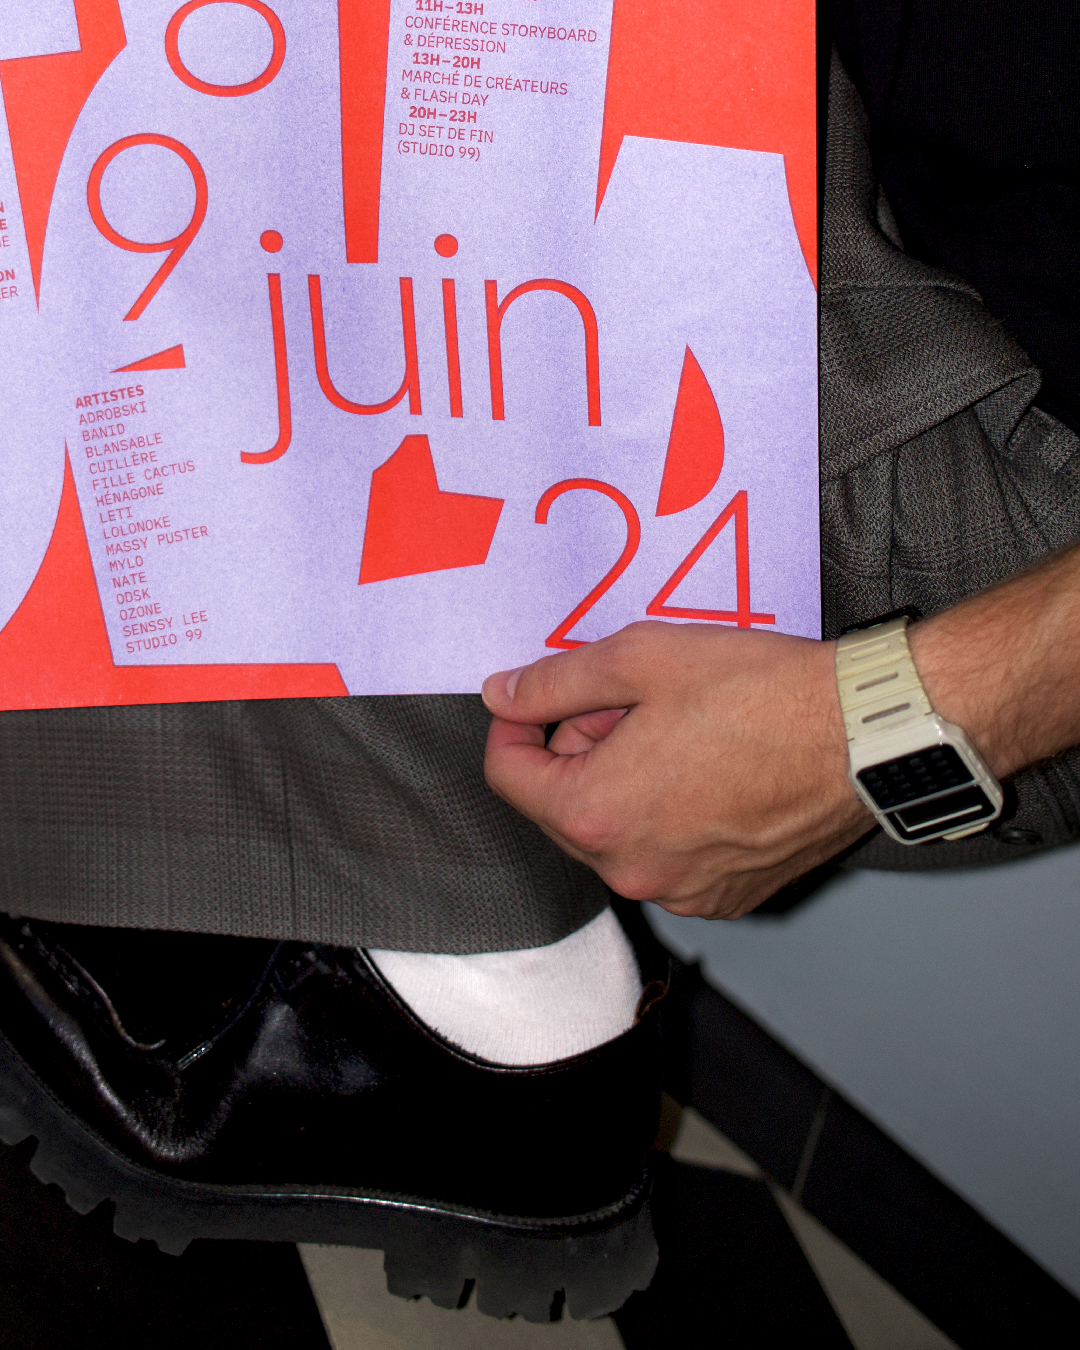 8
11H–13H
CONFÉRENCE STORYBOARD
& DÉPRESSION
13H–20H
MARCHÉ DE CRÉATEURS
& FLASH DAY
20H–23H
DJ SET DE FIN
(STUDIO 99)
9
juin
24
ARTISTES
ADROBSKI
BANID
BLANSABLE
CUILLÈRE
FILLE CACTUS
HÉNAGONE
LETI
LOLONOKE
MASSY PUSTER
MYLO
NATE
ODSK
OZONE
SENSSY LEE
STUDIO 99